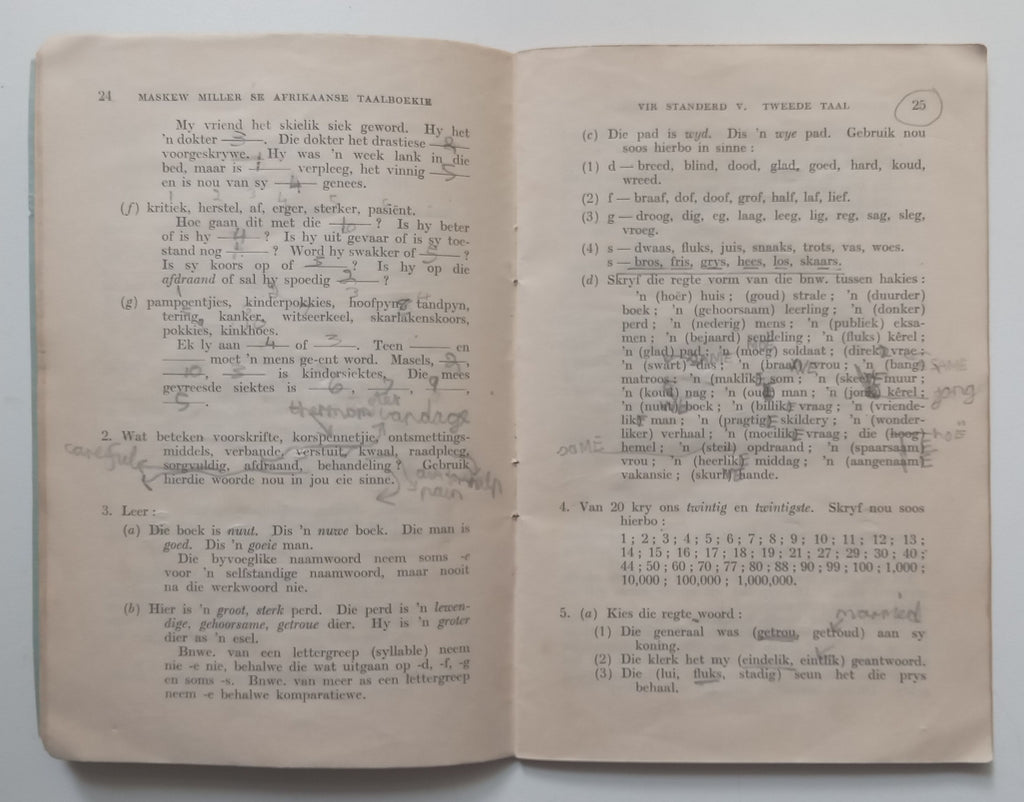 24 MASKEW MILLER SE AFRIKAANSE TAALBOEKIE
My vriend het skielik siek geword. Hy het
'n dokter —3—. Die dokter het drastiese —8—
voorgeskrywe. Hy was 'n week lank in die
bed, maar is —1— verpleeg, het vinnig —5—
en is nou van sy —4— genees.
(f) kritiek, herstel, af, erger, sterker, pasiënt.
Hoe gaan dit met die ——? Is hy beter
of is hy —4—? Is hy uit gevaar of is sy toe-
stand nog —1—? Word hy swakker of —5—?
Is sy koors op of —3—? Is hy op die
afdraand of sal hy spoedig —2—?
(g) pampoentjies, kinderpokkies, hoofpyn, tandpyn,
tering, kanker, witseerkeel, skarlakenskoors,
pokkies, kinkhoes.
Ek ly aan —4— of —3—. Teen —— en
—— moet 'n mens ge-ent word. Masels, —2—,
—10—, —— is kindersiektes. Die mees
gevreesde siektes is —6—, —7—, —9—,
—5—.
bandage
2. Wat beteken voorskrifte, korspennetjie, ontsmettings-
middels, verbande, verstuit, kwaal, raadpleeg,
careful
sorgvuldig, afdraand, behandeling? Gebruik
hierdie woorde nou in jou eie sinne.
pain
3. Leer:
(a) Die boek is nuut. Dis 'n nuwe boek. Die man is
goed. Dis 'n goeie man.
Die byvoeglike naamwoord neem soms -e
voor 'n selfstandige naamwoord, maar nooit
na die werkwoord nie.
(b) Hier is 'n groot, sterk perd. Die perd is 'n lewen-
dige, gehoorsame, getroue dier. Hy is 'n groter
dier as 'n esel.
Bnwe. van een lettergreep (syllable) neem
nie -e nie, behalwe die wat uitgaan op -d, -f, -g
en soms -s. Bnwe. van meer as een lettergreep
neem -e behalwe komparatiewe.
VIR STANDERD V. TWEEDE TAAL 25
(c) Die pad is wyd. Dis 'n wye pad. Gebruik nou
soos hierbo in sinne:
(1) d — breed, blind, dood, glad, goed, hard, koud,
wreed.
(2) f — braaf, dof, doof, grof, half, laf, lief.
(3) g — droog, dig, eg, laag, leeg, lig, reg, sag, sleg,
vroeg.
(4) s — dwaas, fluks, juis, snaaks, trots, vas, woes.
s — bros, fris, grys, hees, los, skaars.
(d) Skryf die regte vorm van die bnw. tussen hakies:
'n (hoër) huis; (goud) strale; 'n (duurder)
boek; 'n (gehoorsaam) leerling; 'n (donker)
perd; 'n (nederig) mens; 'n (publiek) eksa-
men; 'n (bejaard) sendeling; 'n (fluks) kêrel;
'n (glad) pad; 'n (moeg) soldaat; (direk) vrae;
'n (swart) das; 'n (braaf) vrou; 'n (bang) SAME
matroos; 'n (maklik) som; 'n (skeef) muur;
'n (koud) nag; 'n (oud) man; 'n (jonk) kêrel; jong
'n (nuut) boek; 'n (billik) vraag; 'n (vriende-
lik) man; 'n (pragtig) skildery; 'n (wonder-
liker) verhaal; 'n (moeilik) vraag; die (hoog) HOË
SAME hemel; 'n (steil) opdraand; 'n (spaarsaam)
vrou; 'n (heerlik) middag; 'n (aangenaam)
vakansie; (skurf) hande.
4. Van 20 kry ons twintig en twintigste. Skryf nou soos
hierbo:
1; 2; 3; 4; 5; 6; 7; 8; 9; 10; 11; 12; 13;
14; 15; 16; 17; 18; 19; 21; 27; 29; 30; 40;
44; 50; 60; 70; 77; 80; 88; 90; 99; 100; 1,000;
10,000; 100,000; 1,000,000.
5. (a) Kies die regte woord: married
(1) Die generaal was (getrou, getroud) aan sy
koning.
(2) Die klerk het my (eindelik, eintlik) geantwoord.
(3) Die (lui, fluks, stadig) seun het die prys
behaal.